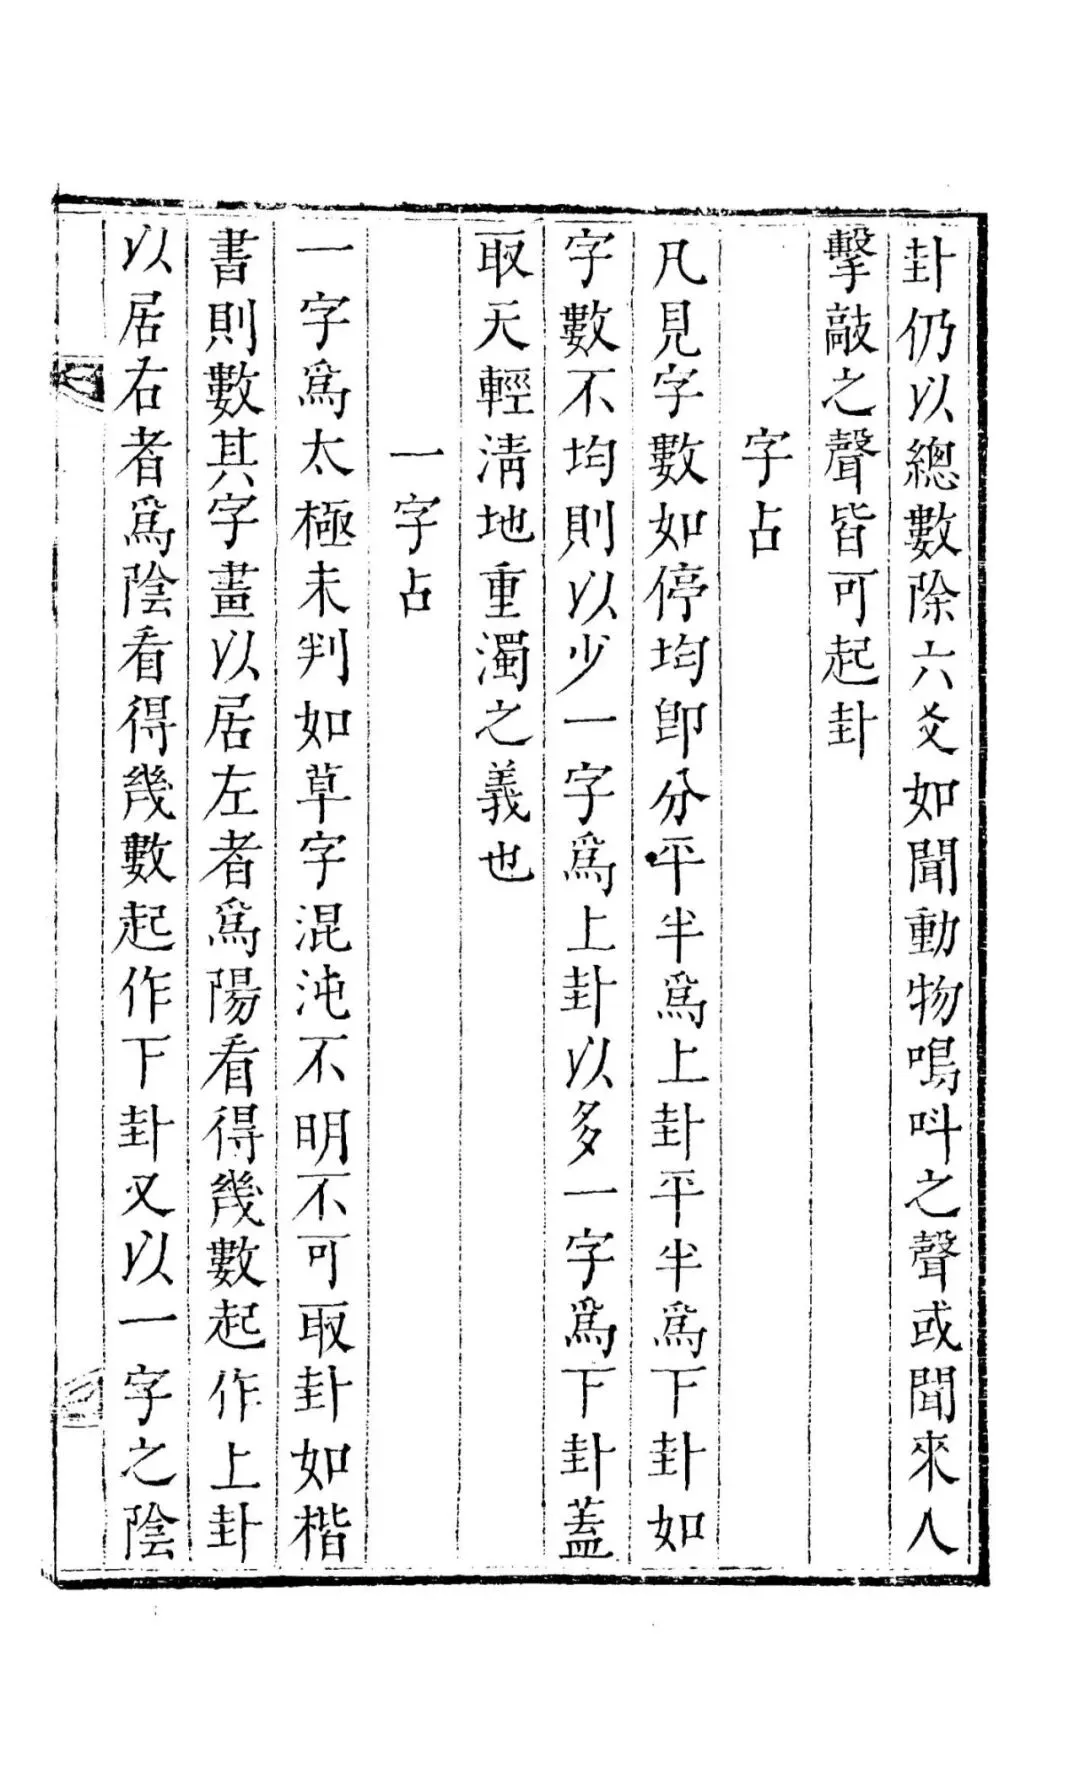 卦仍以總數除六爻如聞動物鳴呌之聲或聞來人
擊敲之聲皆可起卦
字占
凡見字數如停均卽分平半爲上卦平半爲下卦如
字數不均則以少一字爲上卦以多一字爲下卦蓋
取天輕淸地重濁之義也
一字占
一字爲太極未判如草字混沌不明不可取卦如楷
書則數其字畫以居左者爲陽看得幾數起作上卦
以居右者爲陰看得幾數起作下卦又以一字之陰